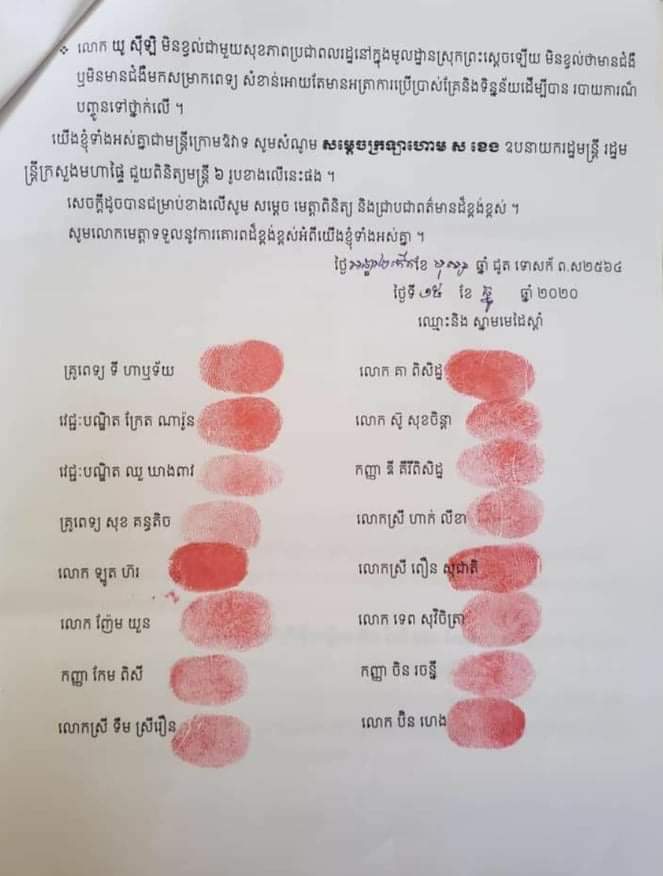 ❖ លោក យូ ស៊ីឡិ មិនខ្វល់ជាមួយសុខភាពប្រជាពលរដ្ឋនៅក្នុងមូលដ្ឋានស្រុកព្រះស្តេចឡើយ មិនខ្វល់ថាមានជំងឺ
ឬមិនមានជំងឺមកសម្រាកពេទ្យ សំខាន់អោយតែមានអត្រាការប្រើប្រាស់គ្រែនិងទិន្នន័យដើម្បីបាន របាយការណ៏
បញ្ជូនទៅថ្នាក់លើ ។
យើងខ្ញុំទាំងអស់គ្នាជាមន្ត្រីក្រោមឱវាទ សូមសំណូម សម្តេចក្រឡាហោម ស ខេង ឧបនាយករដ្ឋមន្ត្រី រដ្ឋម
ន្ត្រីក្រសួងមហាផ្ទៃ ជួយពិនិត្យមន្ត្រី ៦ រូបខាងលើនេះផង ។
សេចក្តីដូចបានជម្រាប់ខាងលើសូម សម្តេច មេត្តាពិនិត្យ និងជ្រាបជាពត៌មានដ៏ខ្ពង់ខ្ពស់ ។
សូមលោកមេត្តាទទួលនូវការគោរពដ៏ខ្ពង់ខ្ពស់អំពីយើងខ្ញុំទាំងអស់គ្នា ។
ថ្ងៃ ខែ ឆ្នាំ ជូត ទោសក័ ព.ស២៥៦៤
ថ្ងៃទី ២៥ ខែ ធ្នូ ឆ្នាំ ២០២០
ឈ្មោះនិង ស្នាមមេដៃស្តាំ
គ្រូពេទ្យ ទី ហាឬទ័យ
លោក គា ពិសិដ្ឋ
វេជ្ជៈបណ្ឌិត ក្រែត ណារ៉ូន
លោក ស៊ូ សុខចិន្តា
វេជ្ជៈបណ្ឌិត ឈូ ឃាងពាវ
កញ្ញា ឌី គីរីពិសិដ្ឋ
គ្រូពេទ្យ សុខ គន្ធតិច
លោកស្រី ហាក់ លីខា
លោក ឡុត ហ៊រ
លោកស្រី ពឿន សុជាតិ
លោក ញ៉ែម យួន
លោក ទេព សុវិចិត្រា
កញ្ញា កែម ពិសី
កញ្ញា ចិន រចន្នី
លោកស្រី ទឹម ស្រីរឿន
លោក ប៊ិន ហេង